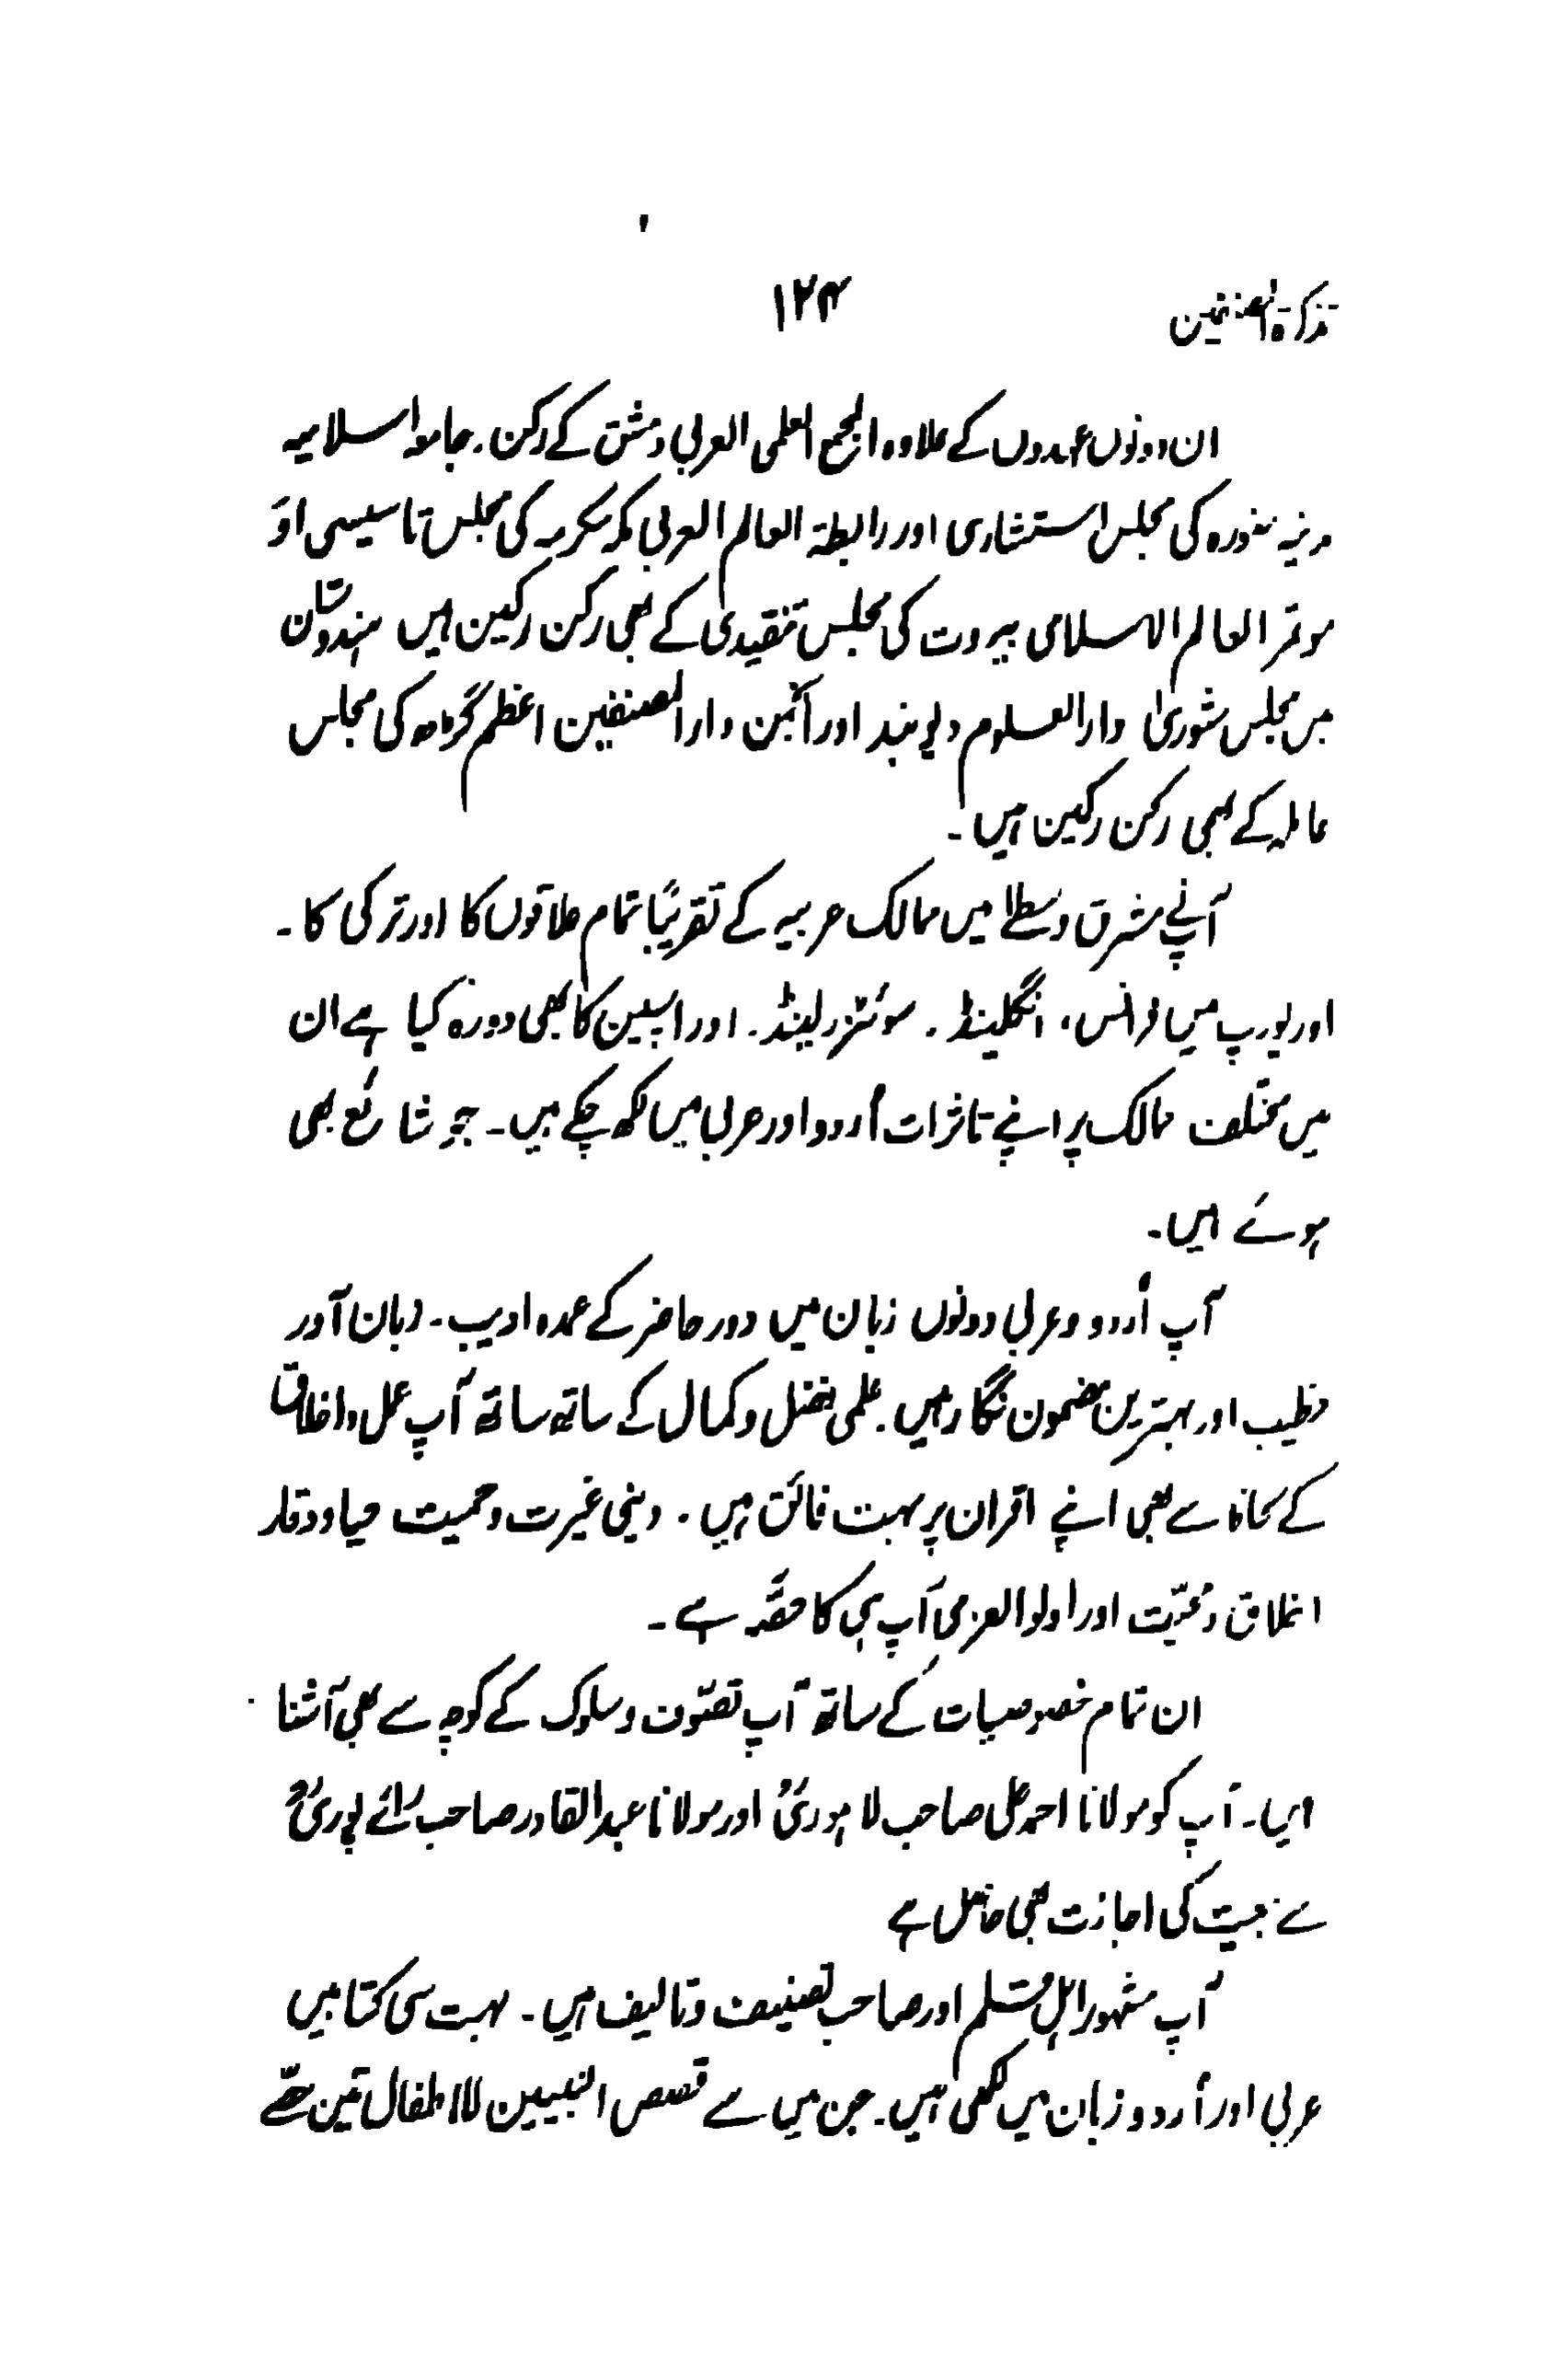 تذکرۃ المصنفین ۱۲۴
ان دونوں عہدوں کے علاوہ المجمع العلمی العربی دمشق کے رکن۔ جامعہ اسلامیہ
مدینہ منورہ کی مجلس استشاری اور رابطۃ العالم العربی مکہ مکرمہ کی مجلس تاسیسی اور
موتمر العالم الاسلامی بیروت کی مجلس تنقیدی کے بھی رکن رکین ہیں ہندوستان
میں مجلس شوریٰ دارالعلوم دیوبند اور انجمن دارالمصنفین اعظم گڑھ کی مجلس
عاملہ کے بھی رکن رکین ہیں۔
آپنے مشرق وسطیٰ میں ممالک عربیہ کے تقریبًا تمام علاقوں کا اور ترکی کا۔
اور یورپ میں فرانس، انگلینڈ۔ سوئٹزرلینڈ۔ اور اسپین کا بھی دورہ کیا ہے ان
میں مختلف ممالک پر اپنے تاثرات اُردو اور عربی میں لکھ چکے ہیں۔ جو شائع بھی
ہوئے ہیں۔
آپ اُردو و عربی دونوں زبان میں دور حاضر کے عمدہ ادیب۔ زبان آور
خطیب اور بہترین مضمون نگار ہیں۔ علمی فضل و کمال کے ساتھ ساتھ آپ عمل و اخلاق
کے لحاظ سے بھی اپنے اقران پر بہت فائق ہیں۔ دینی غیرت و حمیت حیا و وقار
اخلاق و محبّت اور اولوالعزمی آپ ہی کا حصّہ ہے۔
ان تمام خصوصیات کے ساتھ آپ تصوّف و سلوک کے کوچہ سے بھی آشنا
ہیں۔ آپ کو مولانا احمد علی صاحب لاہوریؒ اور مولانا عبدالقادر صاحب رائے پوریؒ
سے بیعت کی اجازت بھی حاصل ہے
آپ مشہور اہل قلم اور صاحب تصنیف و تالیف ہیں۔ بہت سی کتابیں
عربی اور اُردو زبان میں لکھی ہیں۔ جن میں سے قصص النبیین للاطفال تین حصّے